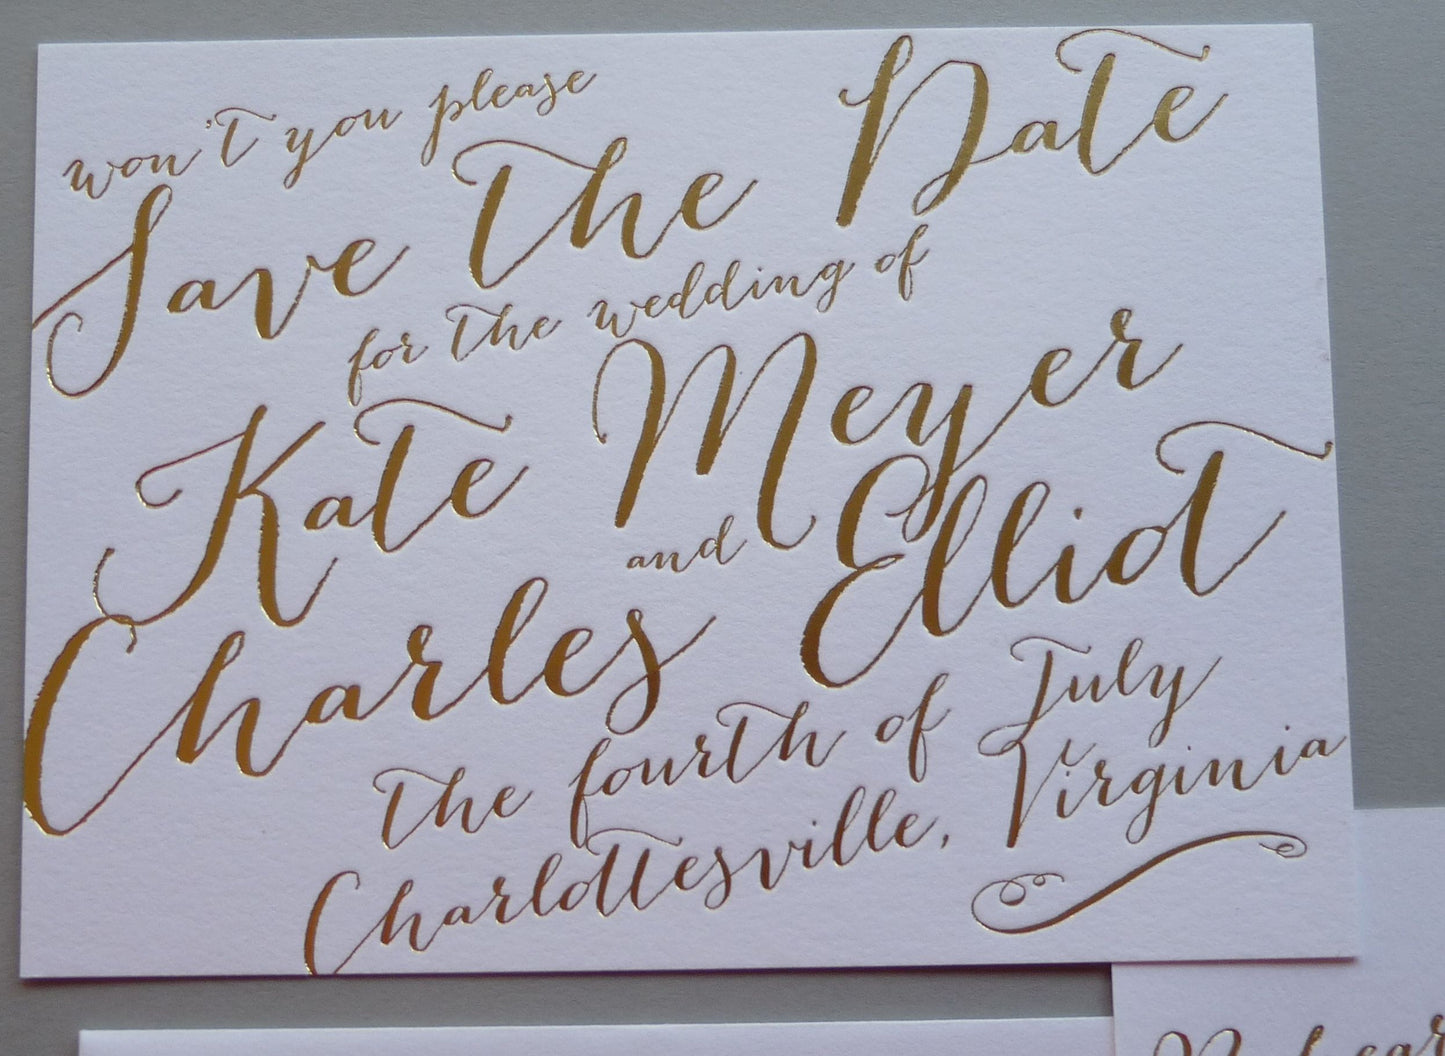 won't you please
Save the Date
for the wedding of
Kate Meyer
and
Charles Elliot
the fourth of July
Charlottesville, Virginia